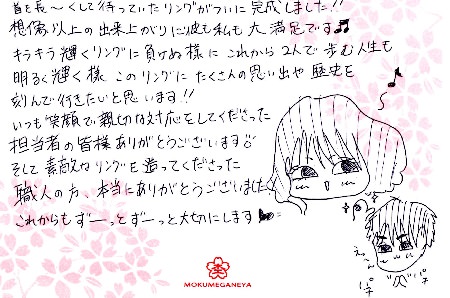 首を長〜くして待っていたリングがついに完成しました!!
想像以上の出来上がりに彼も私も大満足です♬
キラキラ輝くリングに負けぬ様にこれから2人で歩む人生も
明るく輝く様、このリングにたくさんの思い出や歴史を
刻んで行きたいと思います!!
いつも笑顔で親切な対応をしてくださった
担当者の皆様ありがとうございます
そして素敵なリングを造ってくださった
職人の方、本当にありがとうございました
これからもずーっとずーっと大切にします
えへへ
パチ
パチ
MOKUMEGANEYA